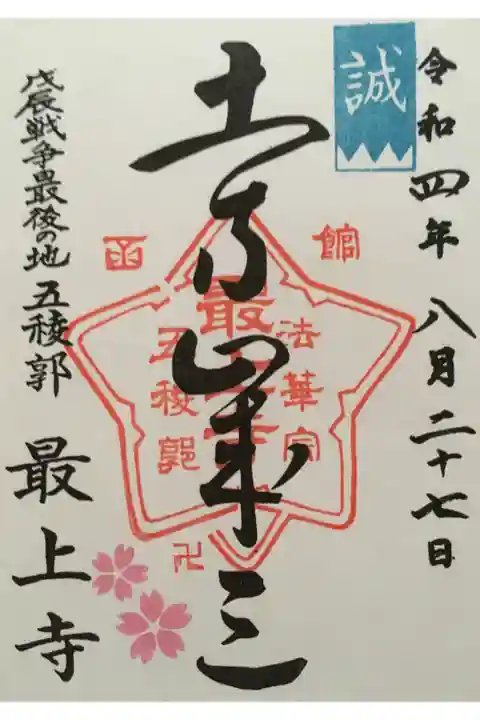 令和四年 八月二十七日
誠
土方歳三
函館
法華宗
最上寺
五稜郭
卍
戊辰戦争最後の地 五稜郭
最上寺